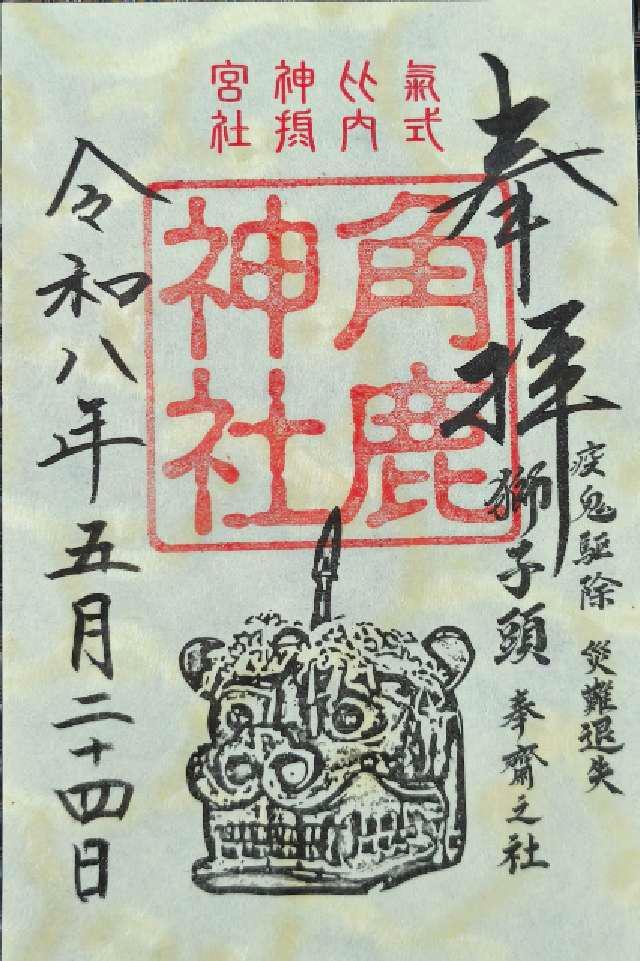 氣比神宮
式内摂社
奉拝
疫鬼驅除　災難退失
獅子頭　奉齋之社
角鹿神社
令和八年五月二十四日